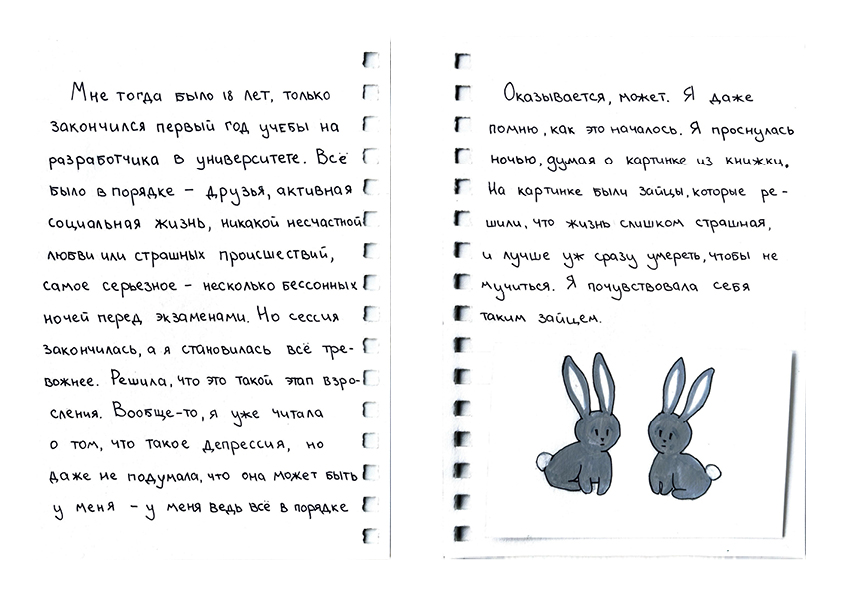 Мне тогда было 18 лет, только
закончился первый год учебы на
разработчика в университете. Всё
было в порядке – друзья, активная
социальная жизнь, никакой несчастной
любви или страшных происшествий,
самое серьезное – несколько бессонных
ночей перед экзаменами. Но сессия
закончилась, а я становилась всё тре-
вожнее. Решила, что это такой этап взро-
сления. Вообще-то, я уже читала
о том, что такое депрессия, но
даже не подумала, что она может быть
у меня – у меня ведь всё в порядке
Оказывается, может. Я даже
помню, как это началось. Я проснулась
ночью, думая о картинке из книжки.
На картинке были зайцы, которые ре-
шили, что жизнь слишком страшная,
и лучше уж сразу умереть, чтобы не
мучиться. Я почувствовала себя
таким зайцем.